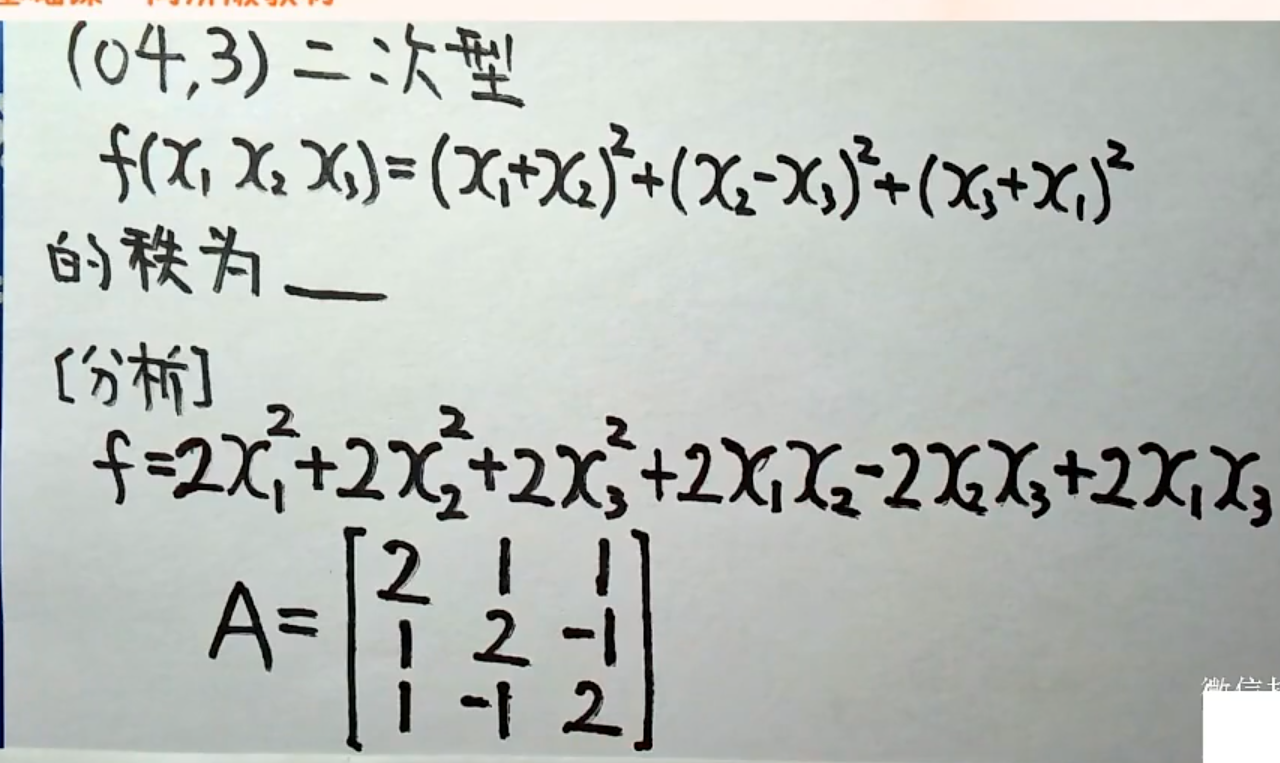 (04,3) 二次型
f(x₁ x₂ x₃)=(x₁+x₂)²+(x₂-x₃)²+(x₃+x₁)²
的秩为 ___
[分析]
f=2x₁²+2x₂²+2x₃²+2x₁x₂-2x₂x₃+2x₁x₃
A=[2 1 1
1 2 -1
1 -1 2]
微信